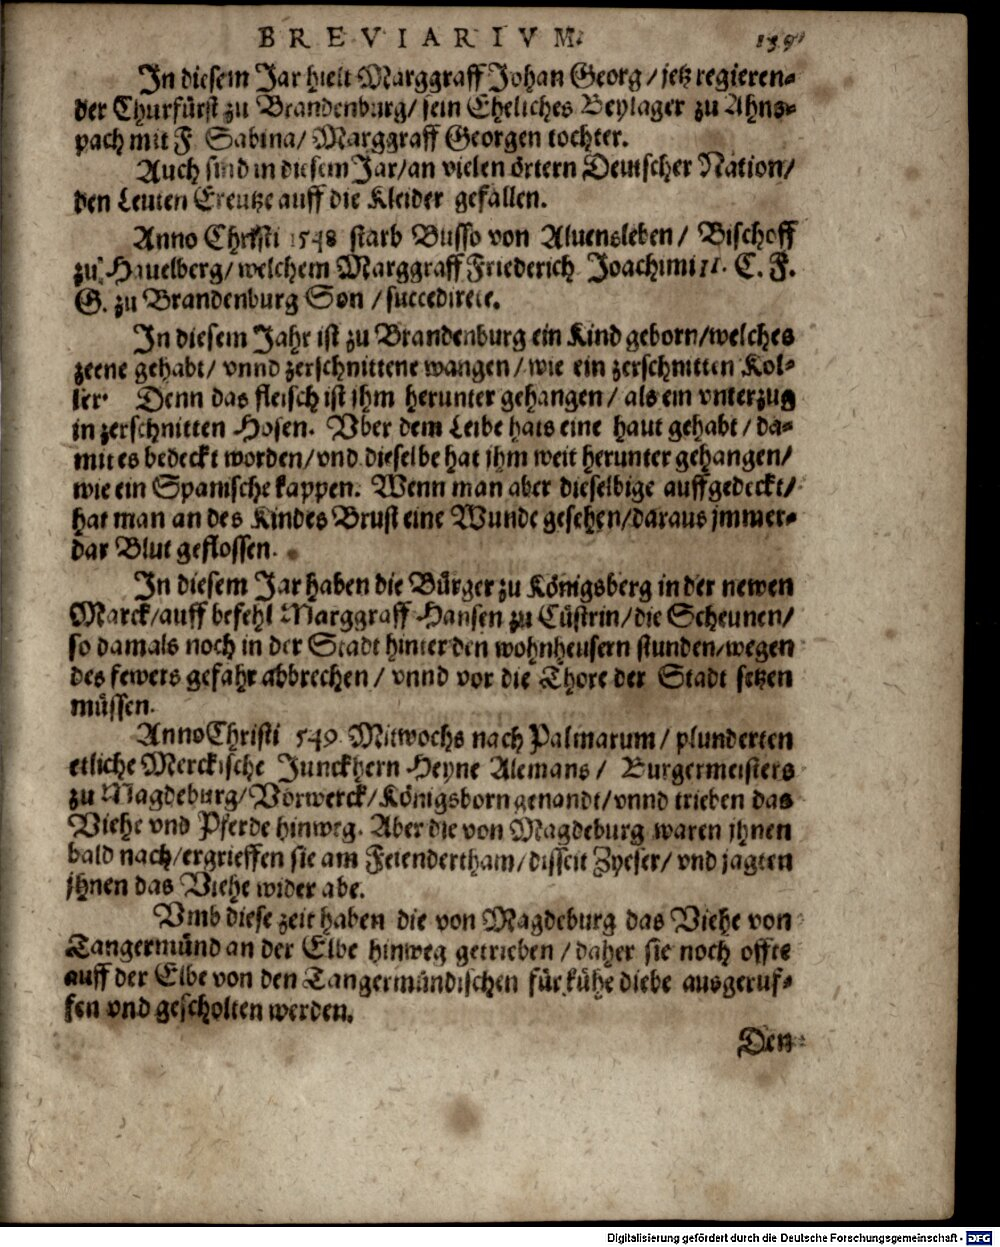 BREVIARIVM. 139
In diesem Jar hielt Marggraff Johan Georg / jetz regieren-
der Churfürst zu Brandenburg / sein Eheliches Beylager zu Ahns-
pach mit F. Sabina / Marggraff Georgen tochter.
Auch sind in diesem Jar / an vielen örtern Deutscher Nation /
den Leuten Creutze auff die Kleider gefallen.
Anno Christi 1548 starb Busso von Aluensleben / Bischoff
zu Hauelberg / welchem Marggraff Friederich Joachimi II. C. F.
G. zu Brandenburg Son / succedirete.
In diesem Jahr ist zu Brandenburg ein Kind geborn / welches
zeene gehabt / vnnd zerschnittene wangen / wie ein zerschnitten Kol-
ler. Denn das fleisch ist jhm herunter gehangen / als ein vnterzug
in zerschnitten Hosen. Vber dem Leibe hats eine haut gehabt / da-
mit es bedeckt worden / vnd dieselbe hat jhm weit herunter gehangen /
wie ein Spanische kappen. Wenn man aber dieselbige auffgedeckt /
hat man an des Kindes Brust eine Wunde gesehen / daraus jmmer-
dar Blut geflossen.
In diesem Jar haben die Bürger zu Königsberg in der newen
Marck / auff befehl Marggraff Hansen zu Cüstrin / die Scheunen /
so damals noch in der Stadt hinter den wohnheusern stunden / wegen
des fewers gefahr abbrechen / vnnd vor die Thore der Stadt setzen
müssen.
Anno Christi 549 Mitwochs nach Palmarum / plunderten
etliche Merckische Junckhern Heyne Alemans / Burgermeisters
zu Magdeburg / Vorwerck / Königsborn genandt / vnnd trieben das
Viehe vnd Pferde hinweg. Aber die von Magdeburg waren jhnen
bald nach / ergrieffen sie am Feiendertham / disseit Zyeser / vnd jagten
jhnen das Viehe wider abe.
Vmb diese zeit haben die von Magdeburg das Viehe von
Tangermünd an der Elbe hinweg getrieben / daher sie noch offte
auff der Elbe von den Tangermündischen für kühe diebe ausgeruf-
fen vnd gescholten werden.
Den
Digitalisierung gefördert durch die Deutsche Forschungsgemeinschaft - DFG